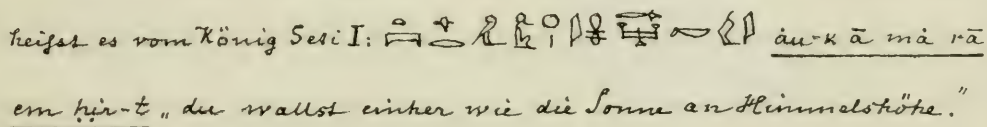 heiſst es vom König Seti I: ȧu-k ā mȧ rā
em ḥir-t „du wallst einher wie die Sonne an Himmelshöhe.“